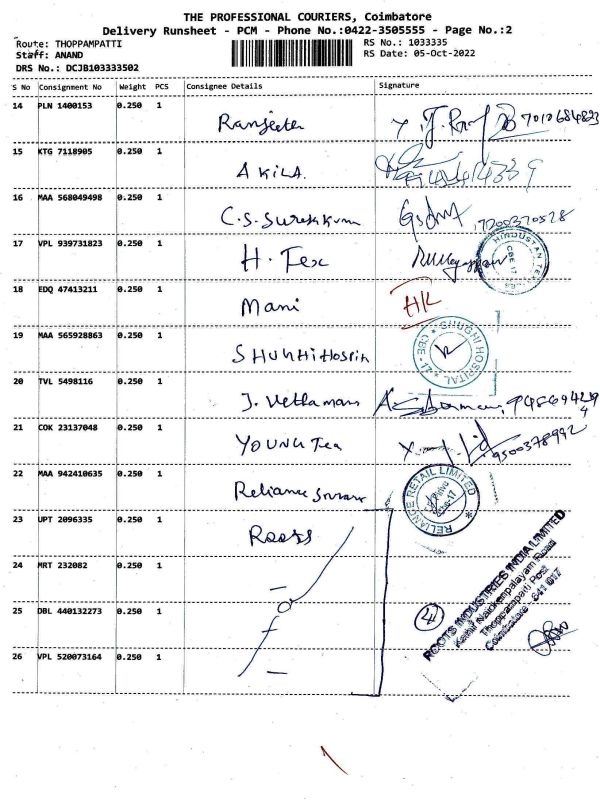 THE PROFESSIONAL COURIERS, Coimbatore
Delivery Runsheet - PCM - Phone No.:0422-3505555 - Page No.:2
Route: THOPPAMPATTI
RS No.: 1033335
Staff: ANAND
RS Date: 05-Oct-2022
DRS No.: DCJB103333502
S No Consignment No Weight PCS Consignee Details Signature
14 PLN 1400153 0.250 1 Ranjeeta
15 KTG 7118905 0.250 1 AKILA.
16 MAA 568049498 0.250 1 C.S. Sureshkumar 7200370528
17 VPL 939731823 0.250 1 H. Tex HINDUSTAN CBE-17
18 EDQ 47413211 0.250 1 Mani HK
19 MAA 565928863 0.250 1 SHUGHI HOSPITAL CBE-17
20 TVL 5498116 0.250 1
21 COK 23137048 0.250 1 YOUNG Tea 9500378992
22 MAA 942410635 0.250 1 Reliance RELIANCE RETAIL LIMITED
23 UPT 2096335 0.250 1 Roots
24 MRT 232082 0.250 1
25 DBL 440132273 0.250 1
26 VPL 520073164 0.250 1
4
ROOTS INDUSTRIES INDIA LIMITED
Thoppampatti Post
Coimbatore - 641 017